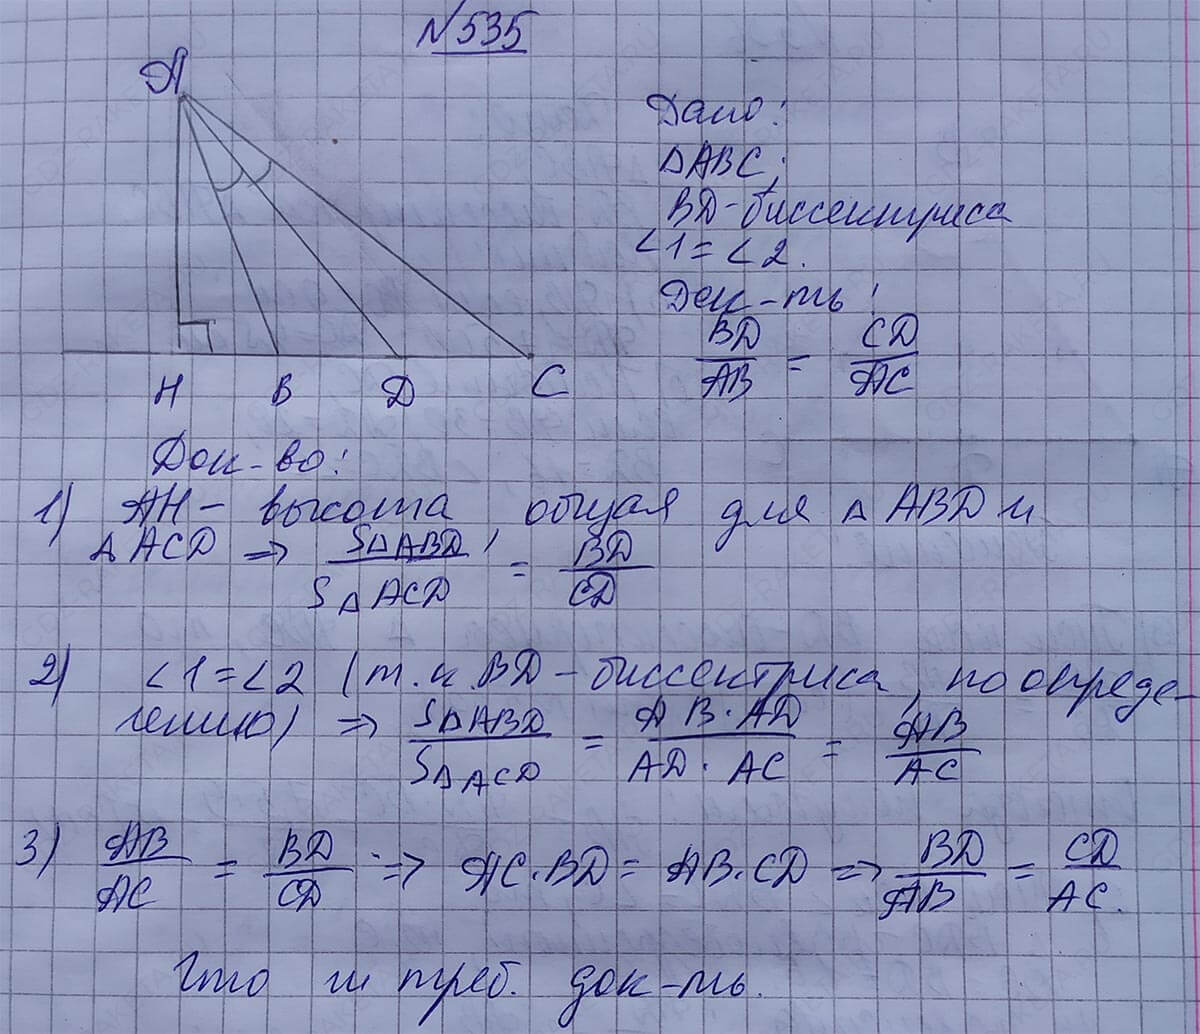 №535
A
H B D C
Дано:
△ABC;
BD-биссектриса
∠1=∠2.
Док-ть:
BD/AB = CD/AC
Док-во:
1) AH - высота общая для △ABD и
△ACD => S△ABD/S△ACD = BD/CD
2) ∠1=∠2 (т.к. BD-биссектриса, по опреде-
лению) => S△ABD/S△ACD = AB·AD/AD·AC = AB/AC
3) AB/AC = BD/CD => AC·BD = AB·CD => BD/AB = CD/AC.
Что и треб. док-ть.